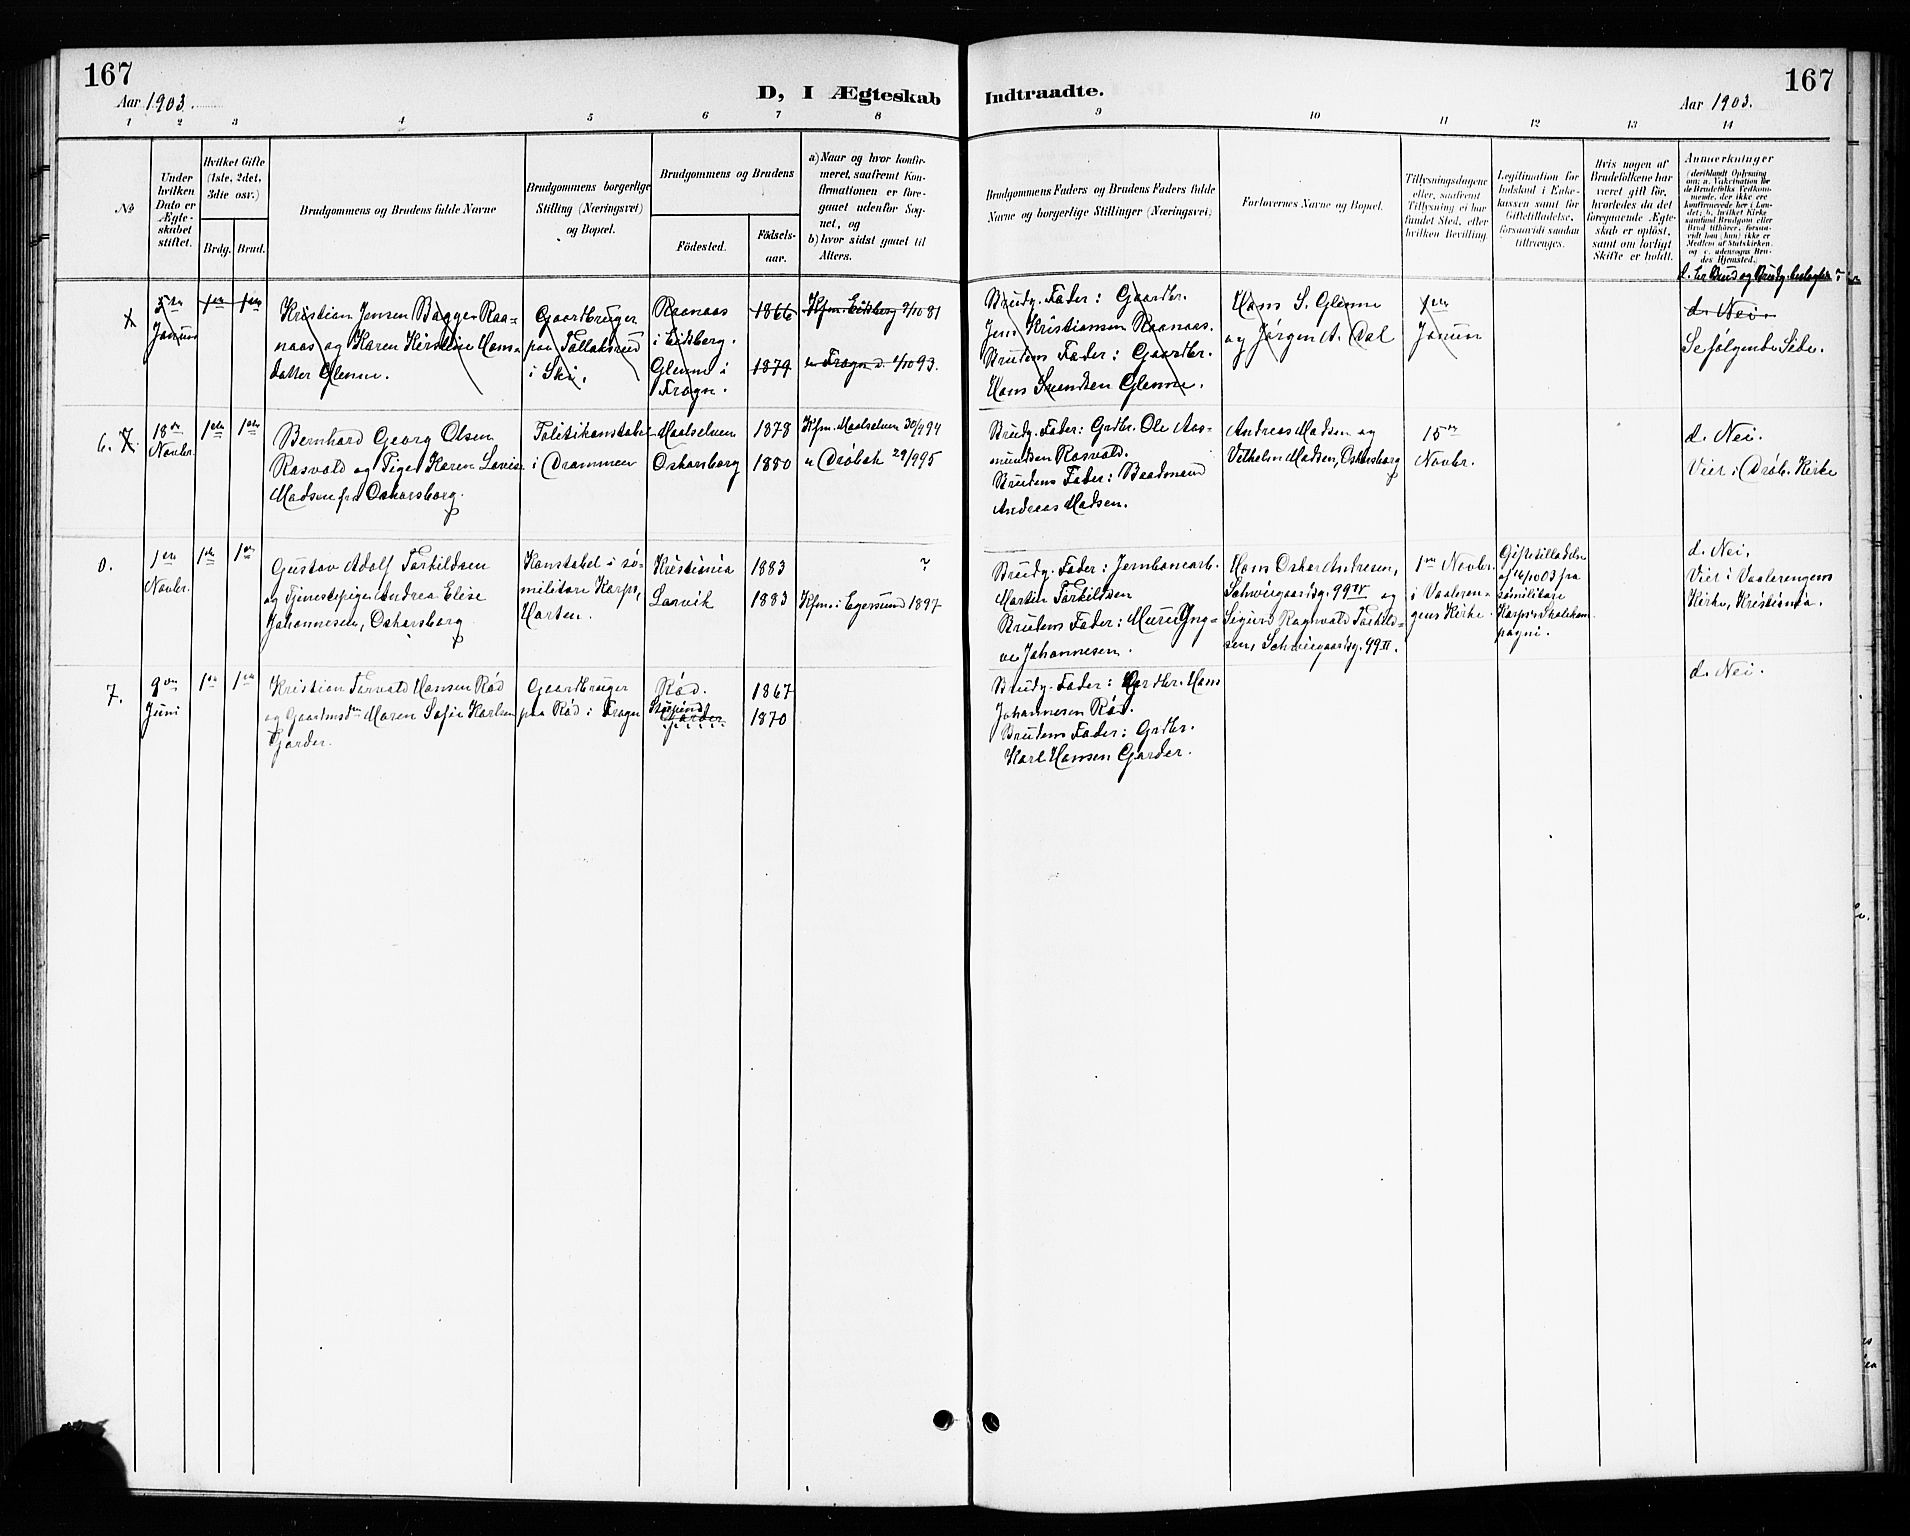 167
Aar 1903.
D, I Ægteskab
Indtraadte.
Aar 1903.
167
1 2 3 4 5 6 7 8
9 10 11 12 13 14
№
Under
hvilken
Dato er
Ægte-
skabet
stiftet.
Hvilket Gifte
(1ste, 2det,
3die osv.)
Brdg. Brud.
Brudgommens og Brudens fulde Navne
Brudgommens borgerlige
Stilling (Næringsvei)
og Bopæl.
Brudgommens og Brudens
Födested.
Födsels-
aar.
a) Naar og hvor konfir-
meret, saafremt Kon-
firmationen er fore-
gaaet udenfor Sog-
net, og
b) hvor sidst gaaet til
Alters.
Brudgommens Faders og Brudens Faders fulde
Navne og borgerlige Stillinger (Næringsvei)
Forlovernes Navne og Bopæl.
Tillysningsdagene
eller, saafremt
Tillysning ei har
fundet Sted, efter
hvilken Bevilling.
Legitimation for
Indskud i Enke-
kassen samt for
Giftetilladelse,
forsaavidt saadan
tiltrænges.
Hvis nogen af
Brudefolkene har
været gift för,
hvorledes da det
foregaaende Ægte-
skab er oplöst,
samt om lovligt
Skifte er holdt.
Anmerkninger
(deriblandt Oplysning
om: a. Vakcination for
de Brudefolks Vedkom-
mende, der ikke ere
konfirmerede her i Lan-
det; b. hvilket Kirke
samfund Brudgom eller
Brud tilhörer, forsaa-
vidt han (hun) ikke er
Medlem af Statskirken,
og c. udensogns Bru-
des Hjemsted.)
d. Er Brud og Brudg. beslægtede?
5te
Januar
1ste 1ste
Kristian Jensen Bagger Raa-
naas og Karen Kirstine Hans-
datter Glenne.
Gaardbruger
paa Tollaksrud
i Ski.
Raanaas
i Eidsberg.
Glenne i
Frogn.
1866
1879
Kfm. Eidsberg 2/10 81
" Frogn d. 1/10 93.
Brudg. Fader: Gaardbr.
Jens Kristiansen Raanaas.
Brudens Fader: Gaardbr.
Hans Svendsen Glenne.
Hans S. Glenne
og Jørgen A. Dal
1ste
Januar
d. Nei.
Se følgende Side.
6.
18de
Novbr.
1ste 1ste
Bernhard Georg Olsen
Rasvold og Pige Karen Lovise
Madsen fra Oskarsborg.
Politikonstabel
i Drammen
Maalselven
Oskarsborg
1878
1880
Kfm. Maalselven 30/9 94
" Drøbak 29/9 95
Brudg. Fader: Grdbr. Ole Aas-
mundsen Rasvold.
Brudens Fader: Baadmand
Andreas Madsen.
Andreas Madsen og
Vilhelm Madsen, Oskarsborg
15de
Novbr.
d. Nei.
Viet i Drøb. Kirke
0.
1ste
Novbr.
1ste 1ste
Gustav Adolf Torkildsen
og Tjenestepige Andrea Elise
Johannesen, Oskarsborg
Konstabel i sø-
militære Korps,
Horten.
Kristiania
Larvik
1883
1883
?
Kfm. i Egersund 1897
Brudg. Fader: Jernbanearb.
Martin Torkildsen
Brudens Fader: Murer Yng-
ve Johannesen.
Hans Oskar Andresen,
Schweigaardsg. 99 IV og
Sigurd Ragnvald Torkild-
sen, Schweigaardsg. 99 II.
1ste Novbr.
i Vaaleren-
gens Kirke
Giftetilladelse
af 16/10 03 fra
sømilitære
Korps's Skolekom-
pagni.
d. Nei,
Viet i Vaalerengens
Kirke, Kristiania.
7.
9de
Juni
1ste 1ste
Kristian Torvald Hansen Rød
og Gaardmsd. Maren Sofie Karlsen
Garder.
Gaardbruger
paa Rød i Frogn
Rød.
Garder
1867
1870
Brudg. Fader: Gardbr. Hans
Johannesen Rød.
Brudens Fader: Grdbr.
Karl Hansen Garder.
d. Nei.